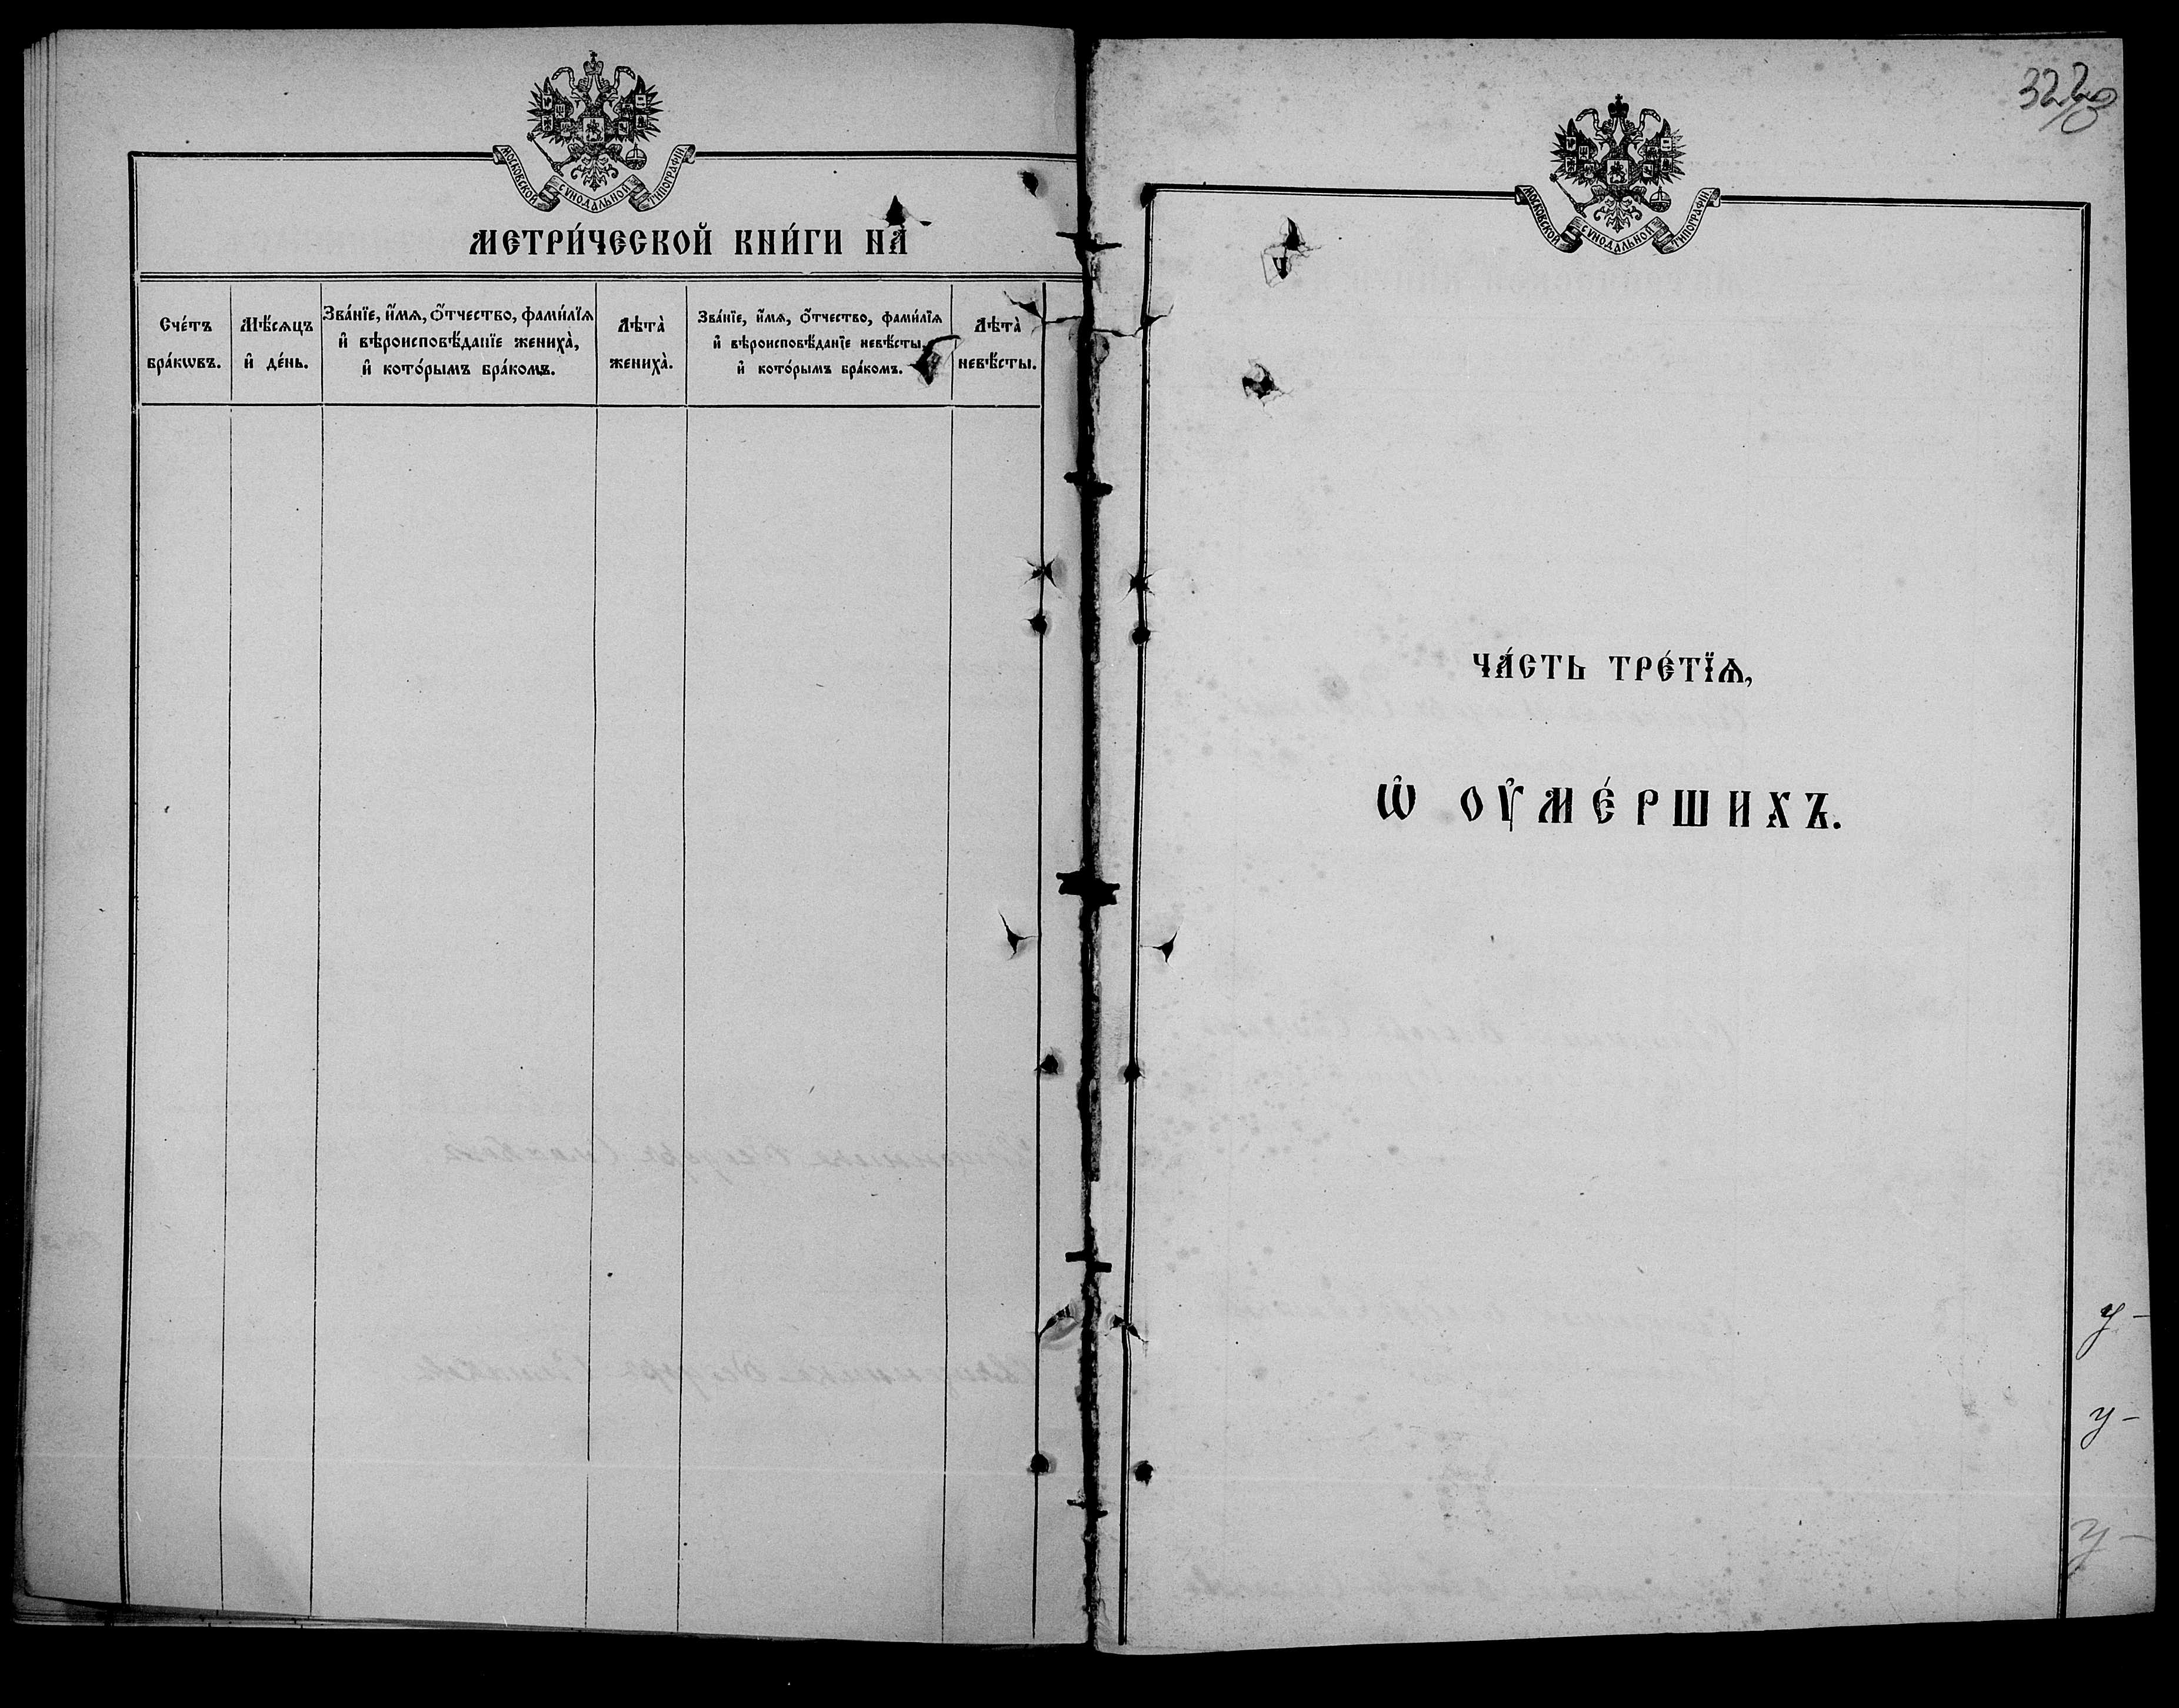 МОСКОВСКОЙ СѴНОДАЛЬНОЙ ТИПОГРАФІИ
МЕТРИ́ЧЕСКОЙ КНИ́ГИ НА̀
Сче́тъ бра́кѡвъ.
Мѣ́сяцъ и҆ де́нь.
Зва́нїе, и҆́мѧ, ѻ҆́тчество, фами́лїѧ
и҆ вѣроисповѣ́данїе жениха̀,
и҆ кото́рымъ бра́комъ.
Лѣта̀ жениха̀.
Зва́нїе, и҆́мѧ, ѻ҆́тчество, фами́лїѧ
и҆ вѣроисповѣ́данїе невѣ́сты,
и҆ кото́рымъ бра́комъ.
Лѣта̀ невѣ́сты.
МОСКОВСКОЙ СѴНОДАЛЬНОЙ ТИПОГРАФІИ
ЧА́СТЬ ТРЕ́ТЇѦ,
Ѡ҆ ОУ҆МЕ́РШИХЪ.
у-
у-
у-